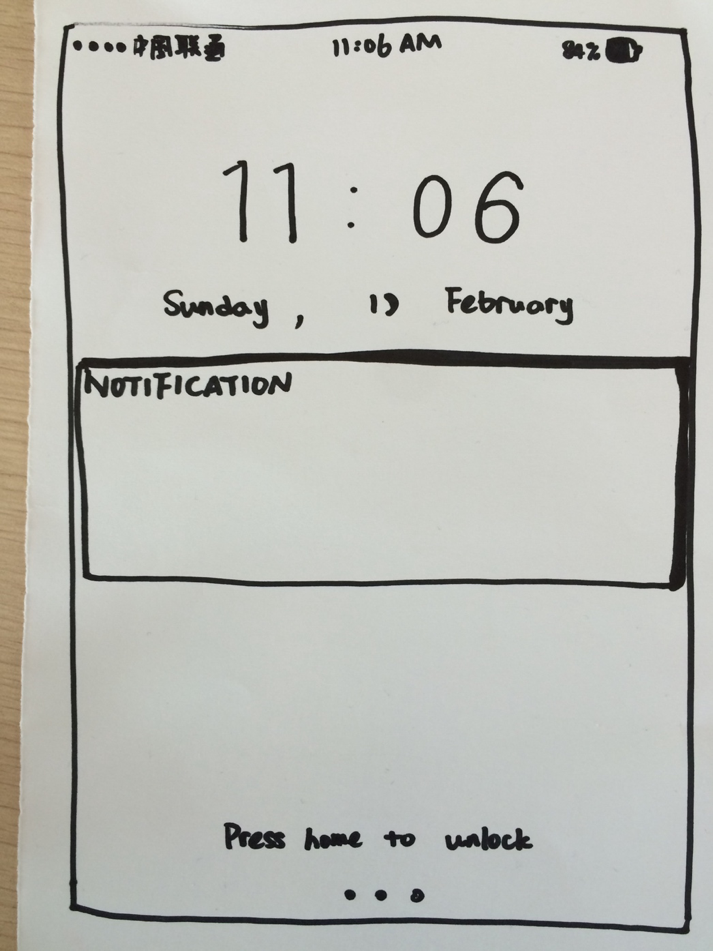 中国联通 11:06 AM 84%
11:06
Sunday, February
NOTIFICATION
Press home to unlock